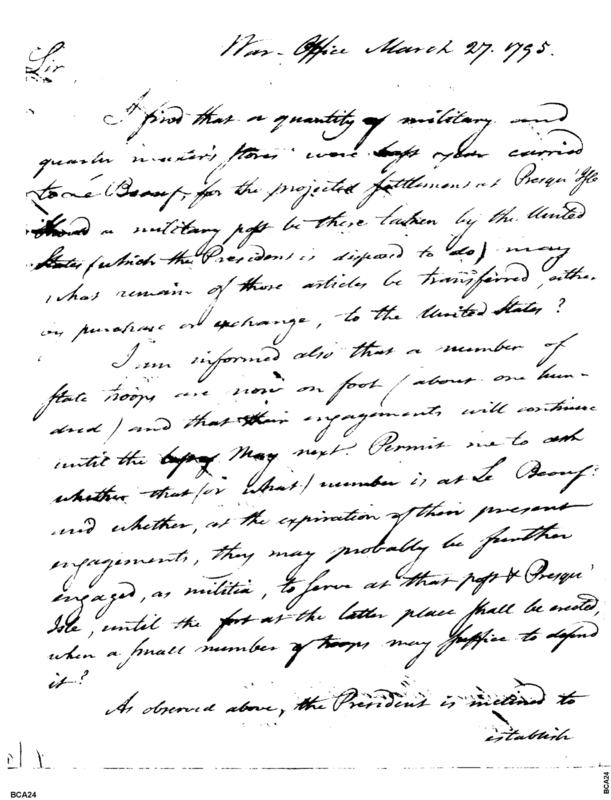 War-Office March 27. 1795.
Sir
I find that a quantity of military and
quarter master's stores were last year carried
to Le Beouf, for the projected settlement at Presqu' Isle
Should a military post be there taken by the United
States (which the President is disposed to do) may
what remain of those articles be transferred, either
on purchase or exchange, to the United States?
I am informed also that a number of
state troops are now on foot (about one hun-
dred) and that their engagements will continue
until the last of May next. Permit me to ask
whether that (or what) number is at Le Beouf?
and whether, at the expiration of their present
engagements, they may probably be further
engaged, as militia, to serve at that post & Presqu'
Isle, until the fort at the latter place shall be erected,
when a small number of troops may suffice to defend
it?
As observed above, the President is inclined to
establish
BCA24
BCA24